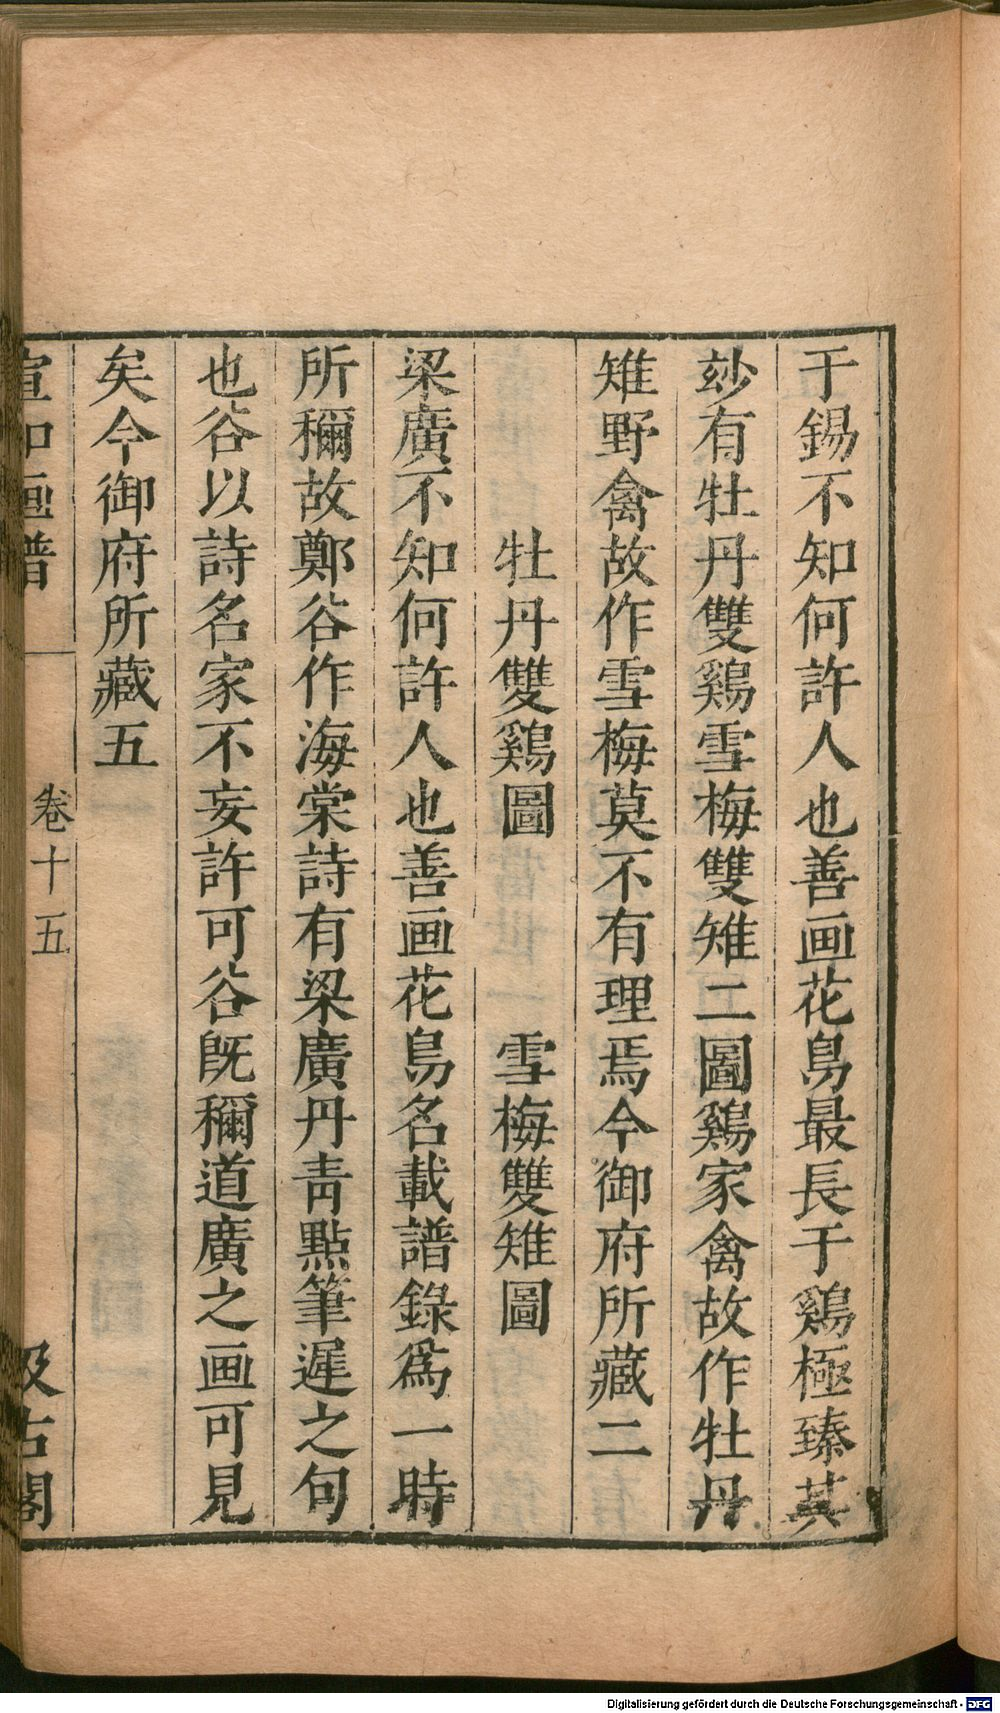 于錫不知何許人也善画花鳥最長于鷄極臻其
玅有牡丹雙鷄雪梅雙雉二圖鷄家禽故作牡丹
雉野禽故作雪梅莫不有理焉今御府所藏二
牡丹雙鷄圖 雪梅雙雉圖
梁廣不知何許人也善画花鳥名載譜錄爲一時
所穪故鄭谷作海棠詩有梁廣丹靑點筆遲之句
也谷以詩名家不妄許可谷旣穪道廣之画可見
矣今御府所藏五
宣和画譜 卷十五 汲古閣
Digitalisierung gefördert durch die Deutsche Forschungsgemeinschaft - DFG